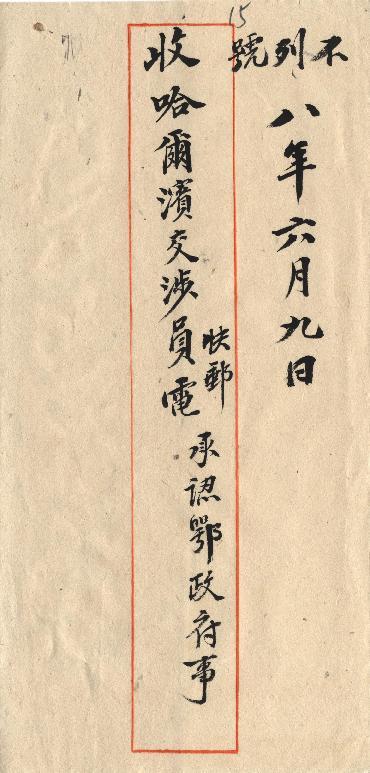 15
不列號
八年六月九日
收哈爾濱交涉員電
快郵
承認鄂政府事